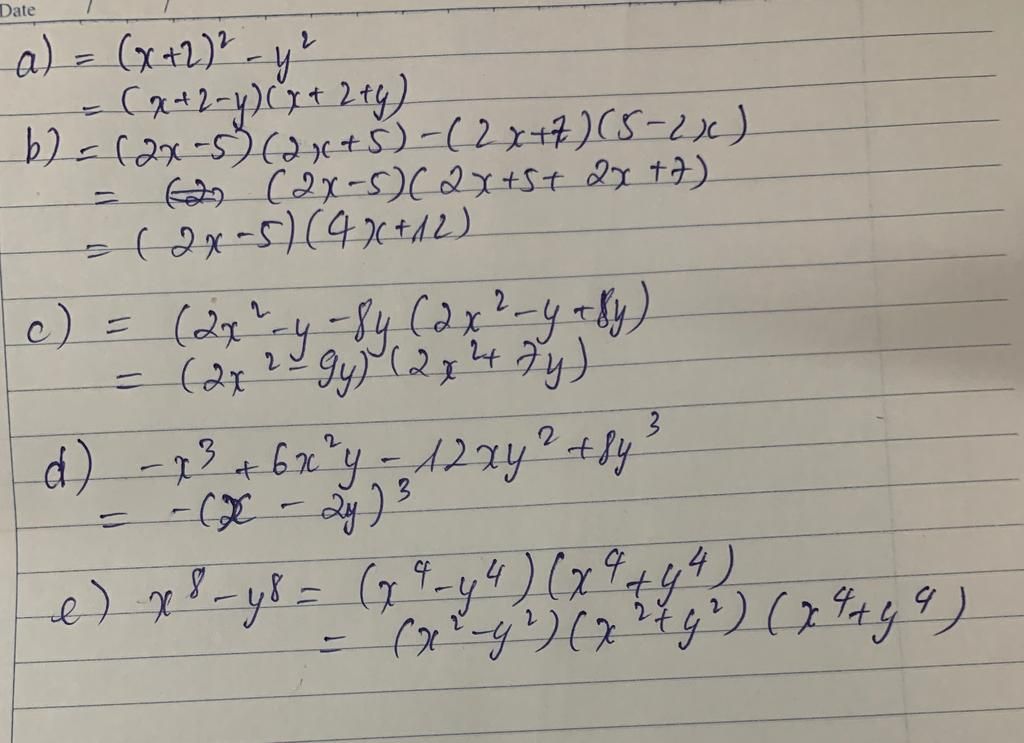 Date / /
a) = (x+2)² - y²
= (x+2-y)(x+2+y)
b) = (2x-5)(2x+5) - (2x+7)(5-2x)
= (2x-5)(2x+5+2x+7)
= (2x-5)(4x+12)
c) = (2x²-y-8y(2x²-y+8y)
= (2x²-9y)(2x²+7y)
d) -x³+6x²y-12xy²+8y³
= -(x-2y)³
e) x⁸-y⁸ = (x⁴-y⁴)(x⁴+y⁴)
= (x²-y²)(x²+y²)(x⁴+y⁴)